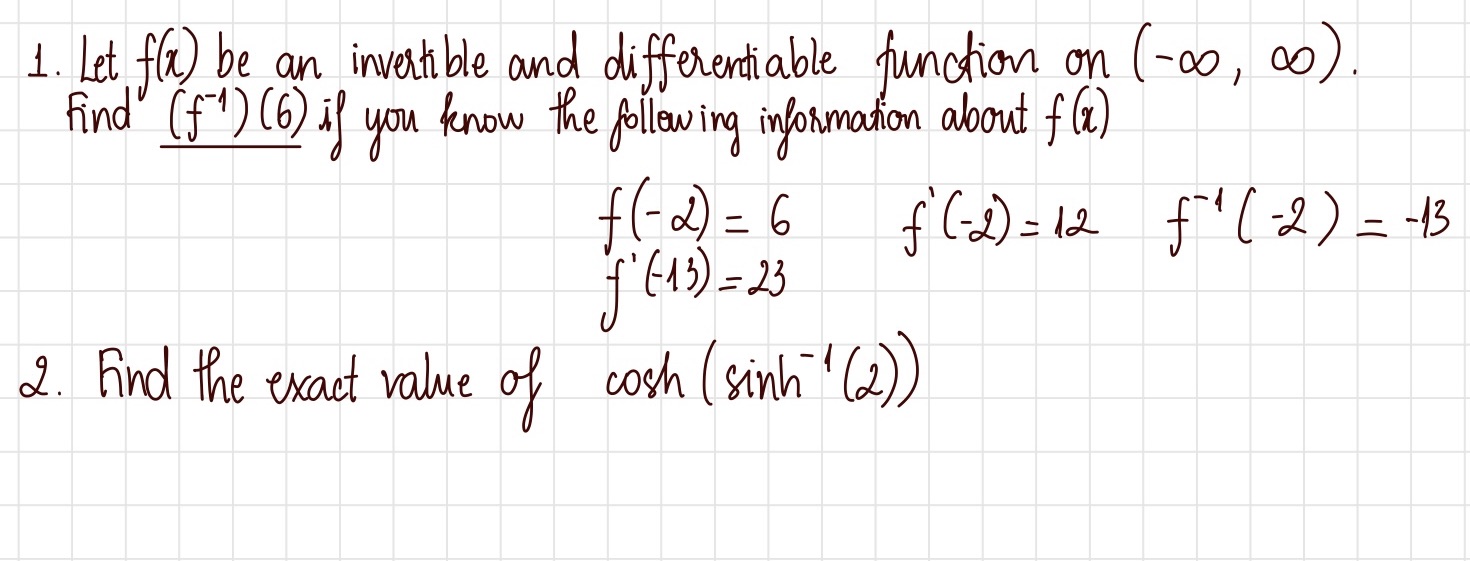 1. Let f(x) be an invertible and differentiable function on (-∞, ∞).
Find (f⁻¹)(6) if you know the following information about f(x)
f(-2) = 6 f'(-2) = 12 f⁻¹(-2) = -13
f'(-13) = 23
2. Find the exact value of cosh(sinh⁻¹(2))